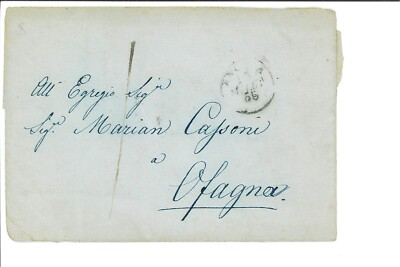 All' Egregio Sigʳ
Sigʳ Marian Capponi
a
Ofagna